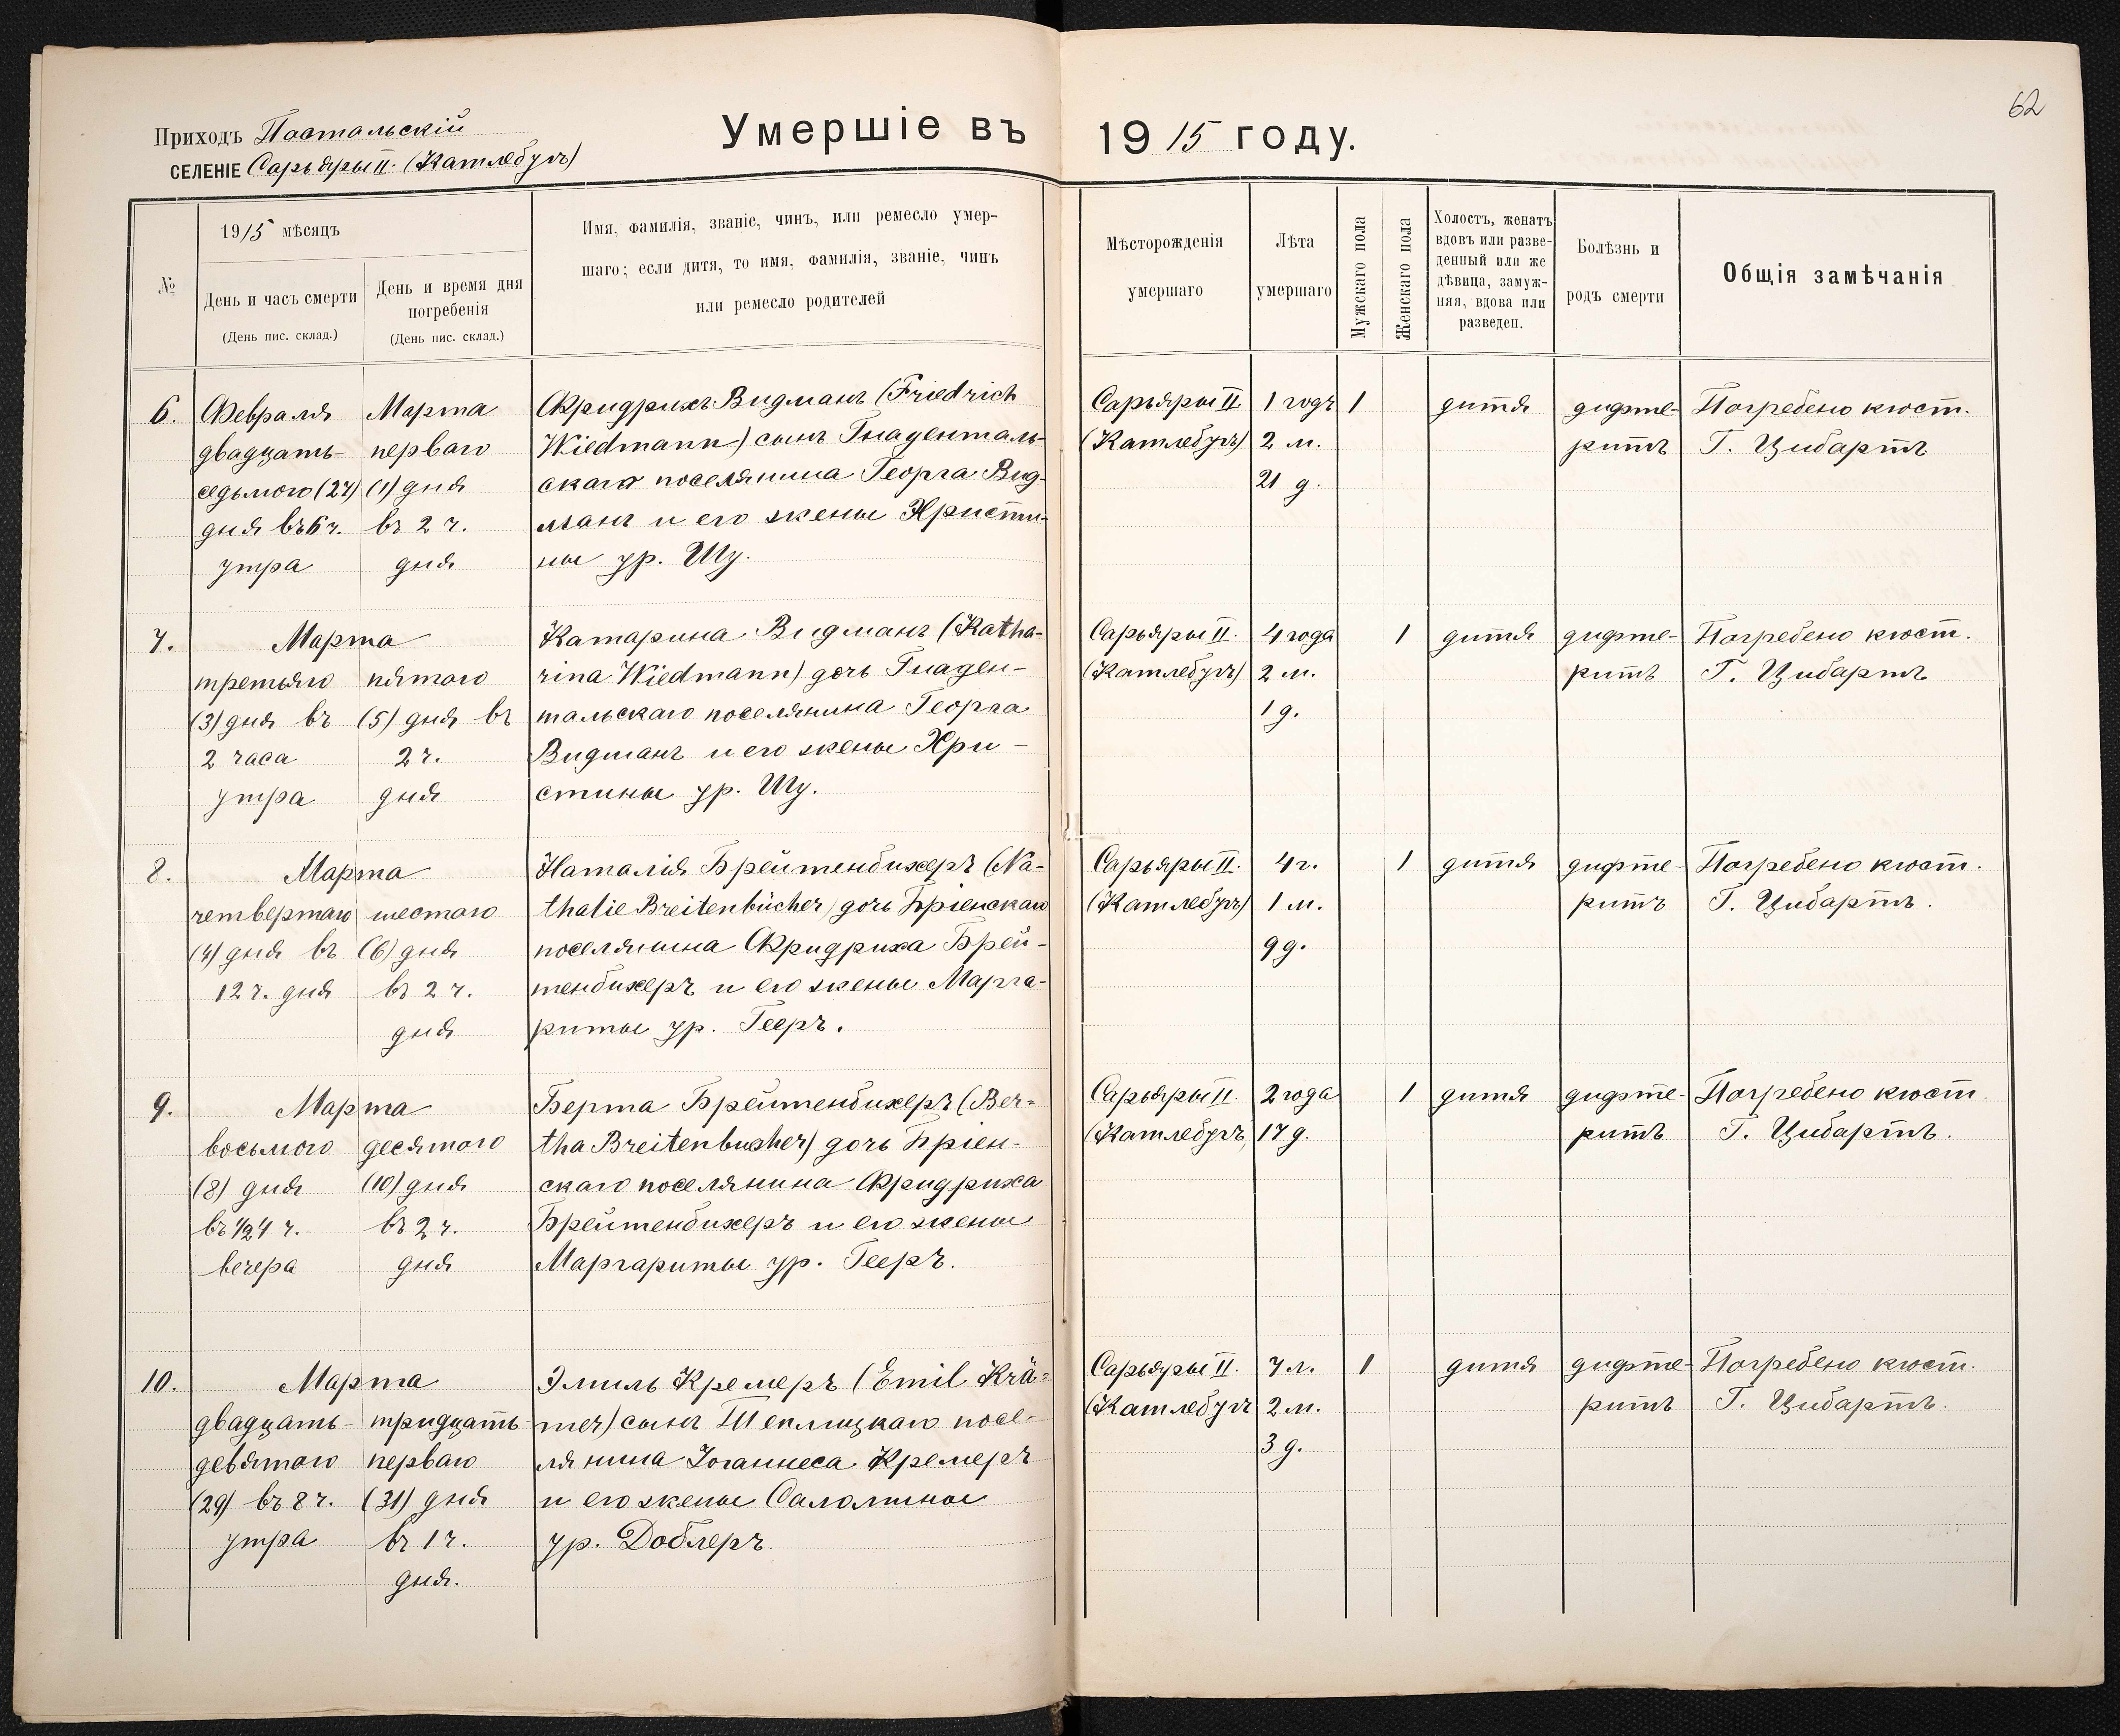 62
Приходъ Постальскій
СЕЛЕНІЕ Сарьяры II. (Катлебугъ)
Умершіе въ 1915 году.
№
1915 мѣсяцъ
День и часъ смерти
(День пис. склад.)
День и время дня
погребенія
(День пис. склад.)
Имя, фамилія, званіе, чинъ, или ремесло умер-
шаго; если дитя, то имя, фамилія, званіе, чинъ
или ремесло родителей
Мѣсторожденія
умершаго
Лѣта
умершаго
Мужскаго пола
Женскаго пола
Холостъ, женатъ
вдовъ или разве-
денный или же
дѣвица, замуж-
няя, вдова или
разведен.
Болѣзнь и
родъ смерти
Общія замѣчанія
6.
Февраля
двадцать-
седьмого (27)
дня въ 6 ч.
утра
Марта
перваго
(1) дня
въ 2 ч.
дня
Фридрихъ Видманъ (Friedrich
Wiedmann) сынъ Гнаденталь-
скаго поселянина Георга Вид-
манъ и его жены Христи-
ны ур. Шу.
Сарьяры II
(Катлебугъ)
1 годъ
2 м.
21 д.
1
дитя
дифте-
ритъ
Погребено кюст.
Г. Цибартъ
7.
Марта
третьяго
(3) дня въ
2 часа
утра
пятого
(5) дня въ
2 ч.
дня
Катарина Видманъ (Katha-
rina Wiedmann) дочь Гнаден-
тальскаго поселянина Георга
Видманъ и его жены Хри-
стины ур. Шу.
Сарьяры II.
(Катлебугъ)
4 года
2 м.
1 д.
1
дитя
дифте-
ритъ
Погребено кюст.
Г. Цибартъ
8.
Марта
четвертаго
(4) дня въ
12 ч. дня
шестаго
(6) дня
въ 2 ч.
дня
Наталія Брейтенбихеръ (Na-
thalie Breitenbücher) дочь Бріенскаго
поселянина Фридриха Брей-
тенбихеръ и его жены Марга-
риты ур. Гееръ.
Сарьяры II.
(Катлебугъ)
4 г.
1 м.
9 д.
1
дитя
дифте-
ритъ
Погребено кюст.
Г. Цибартъ.
9.
Марта
восьмого
(8) дня
въ 1/24 ч.
вечера
десятого
(10) дня
въ 2 ч.
дня
Берта Брейтенбихеръ (Ber-
tha Breitenbucher) дочь Бріен-
скаго поселянина Фридриха
Брейтенбихеръ и его жены
Маргариты ур. Гееръ.
Сарьяры II.
(Катлебугъ)
2 года
17 д.
1
дитя
дифте-
ритъ
Погребено кюст
Г. Цибартъ.
10.
Марта
двадцать-
девятого
(29) въ 8 ч.
утра
тридцать
перваго
(31) дня
въ 1 ч.
дня.
Эмиль Кремеръ (Emil Krä-
mer) сынъ Теплицкаго посе-
лянина Іоганнеса Кремеръ
и его жены Саломины
ур. Доблеръ.
Сарьяры II.
(Катлебугъ
7 л.
2 м.
3 д.
1
дитя
дифте-
ритъ
Погребено кюст.
Г. Цибартъ.